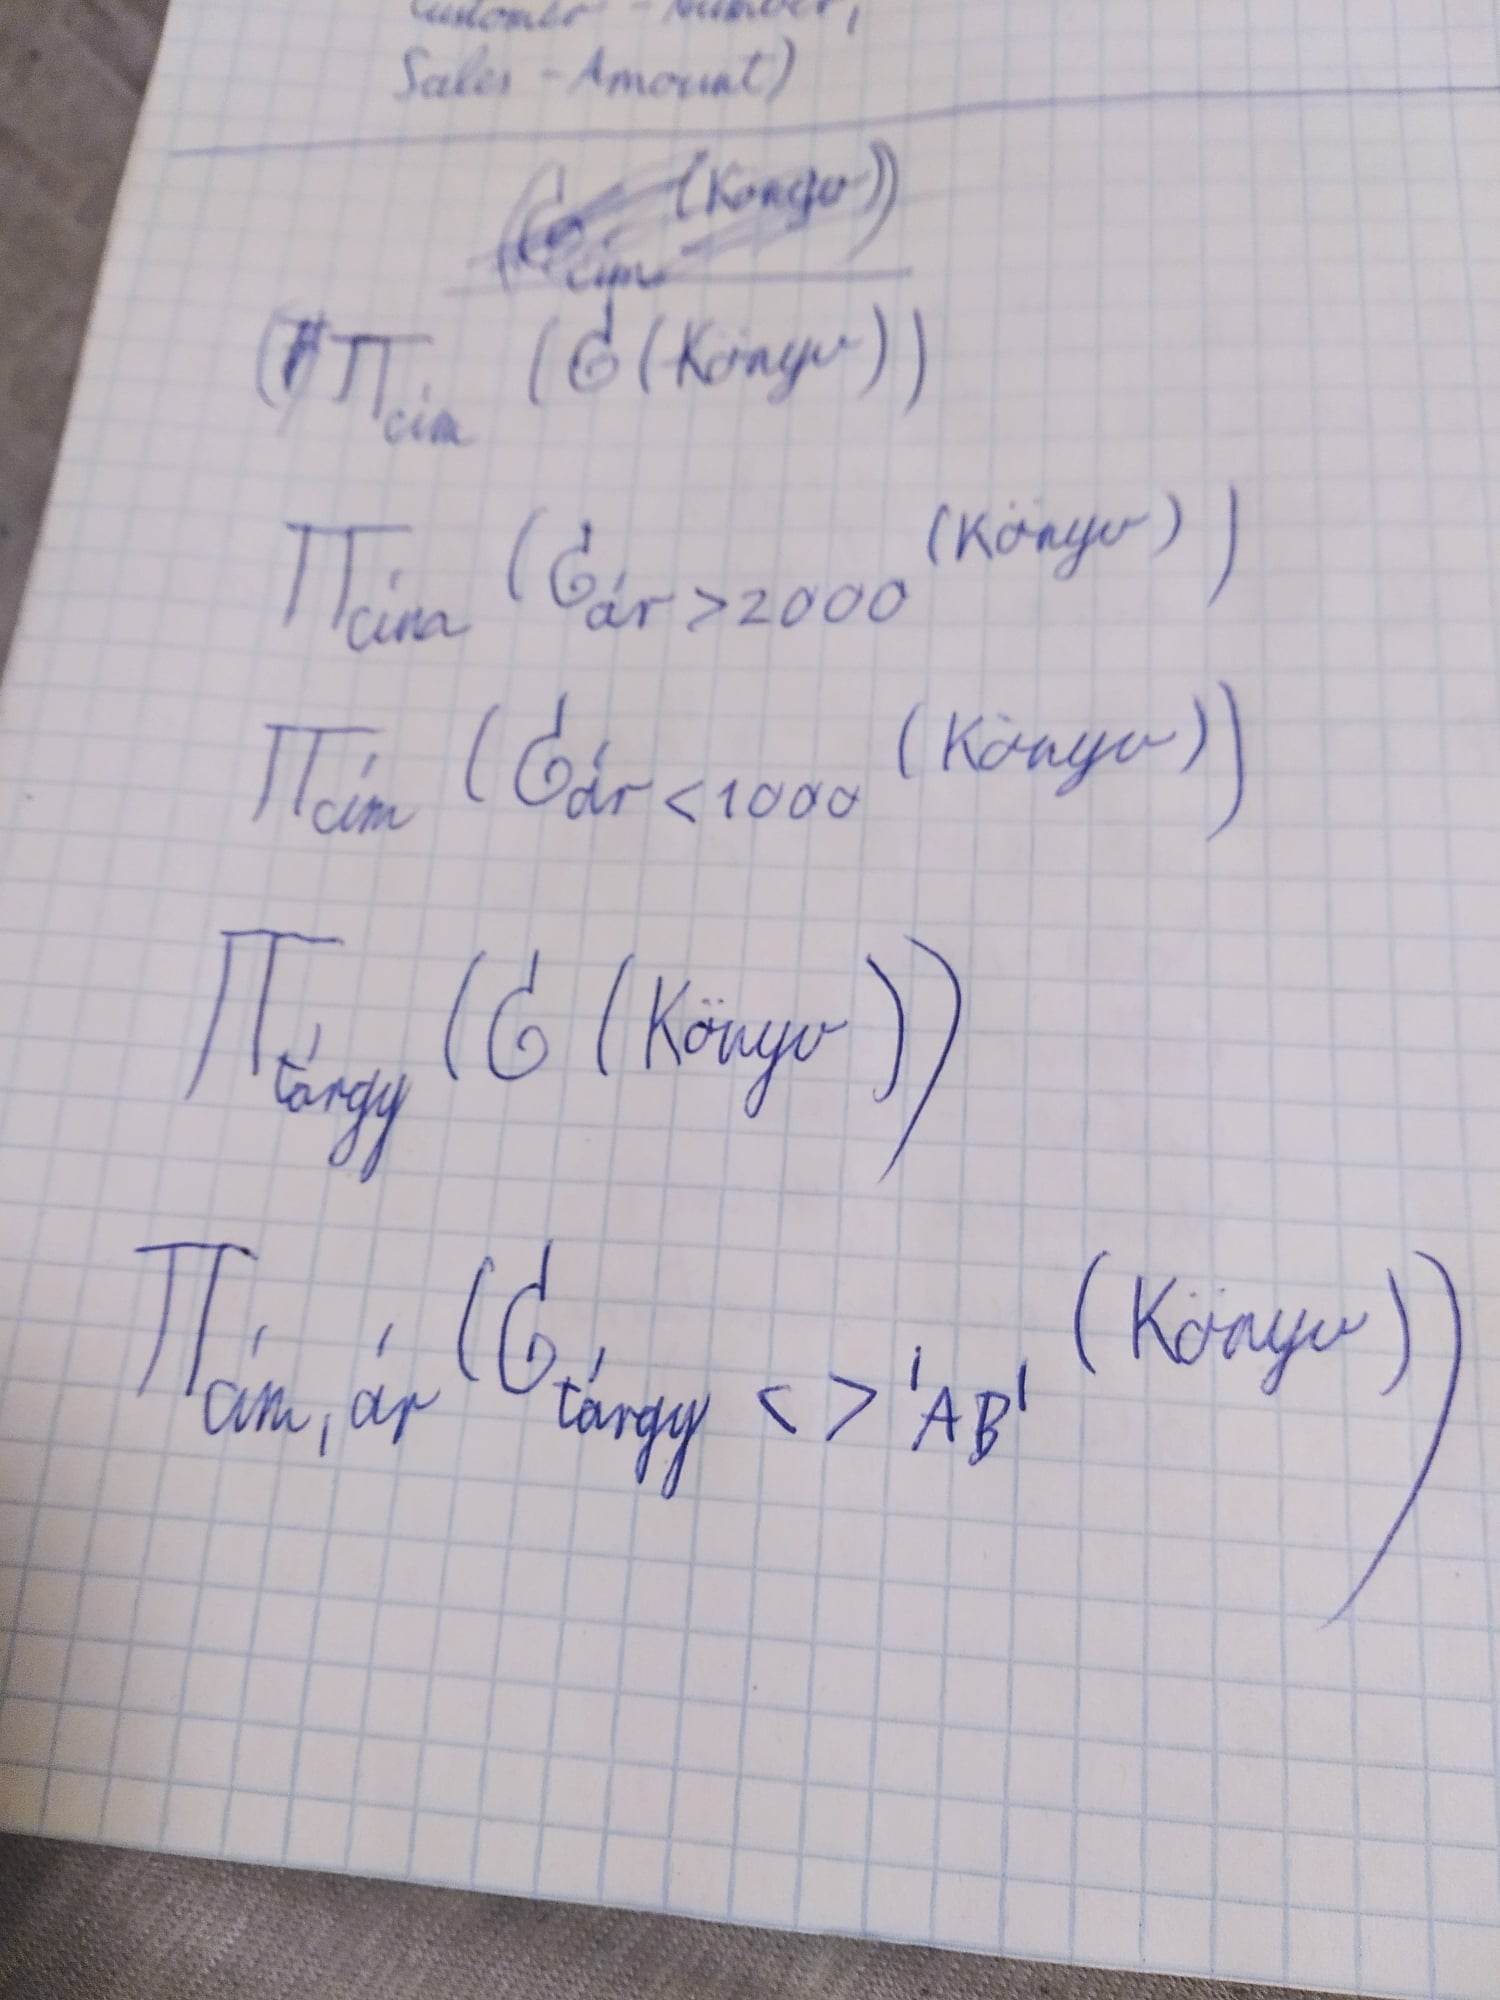 Customer - Number,
Sales - Amount)
(σ cím (Könyv))
(π cím (σ (Könyv))
π címa (σ ár > 2000 (Könyv))
π cím (σ ár < 1000 (Könyv))
π tárgy (σ (Könyv))
π cím, ár (σ tárgy <> 'AB' (Könyv))